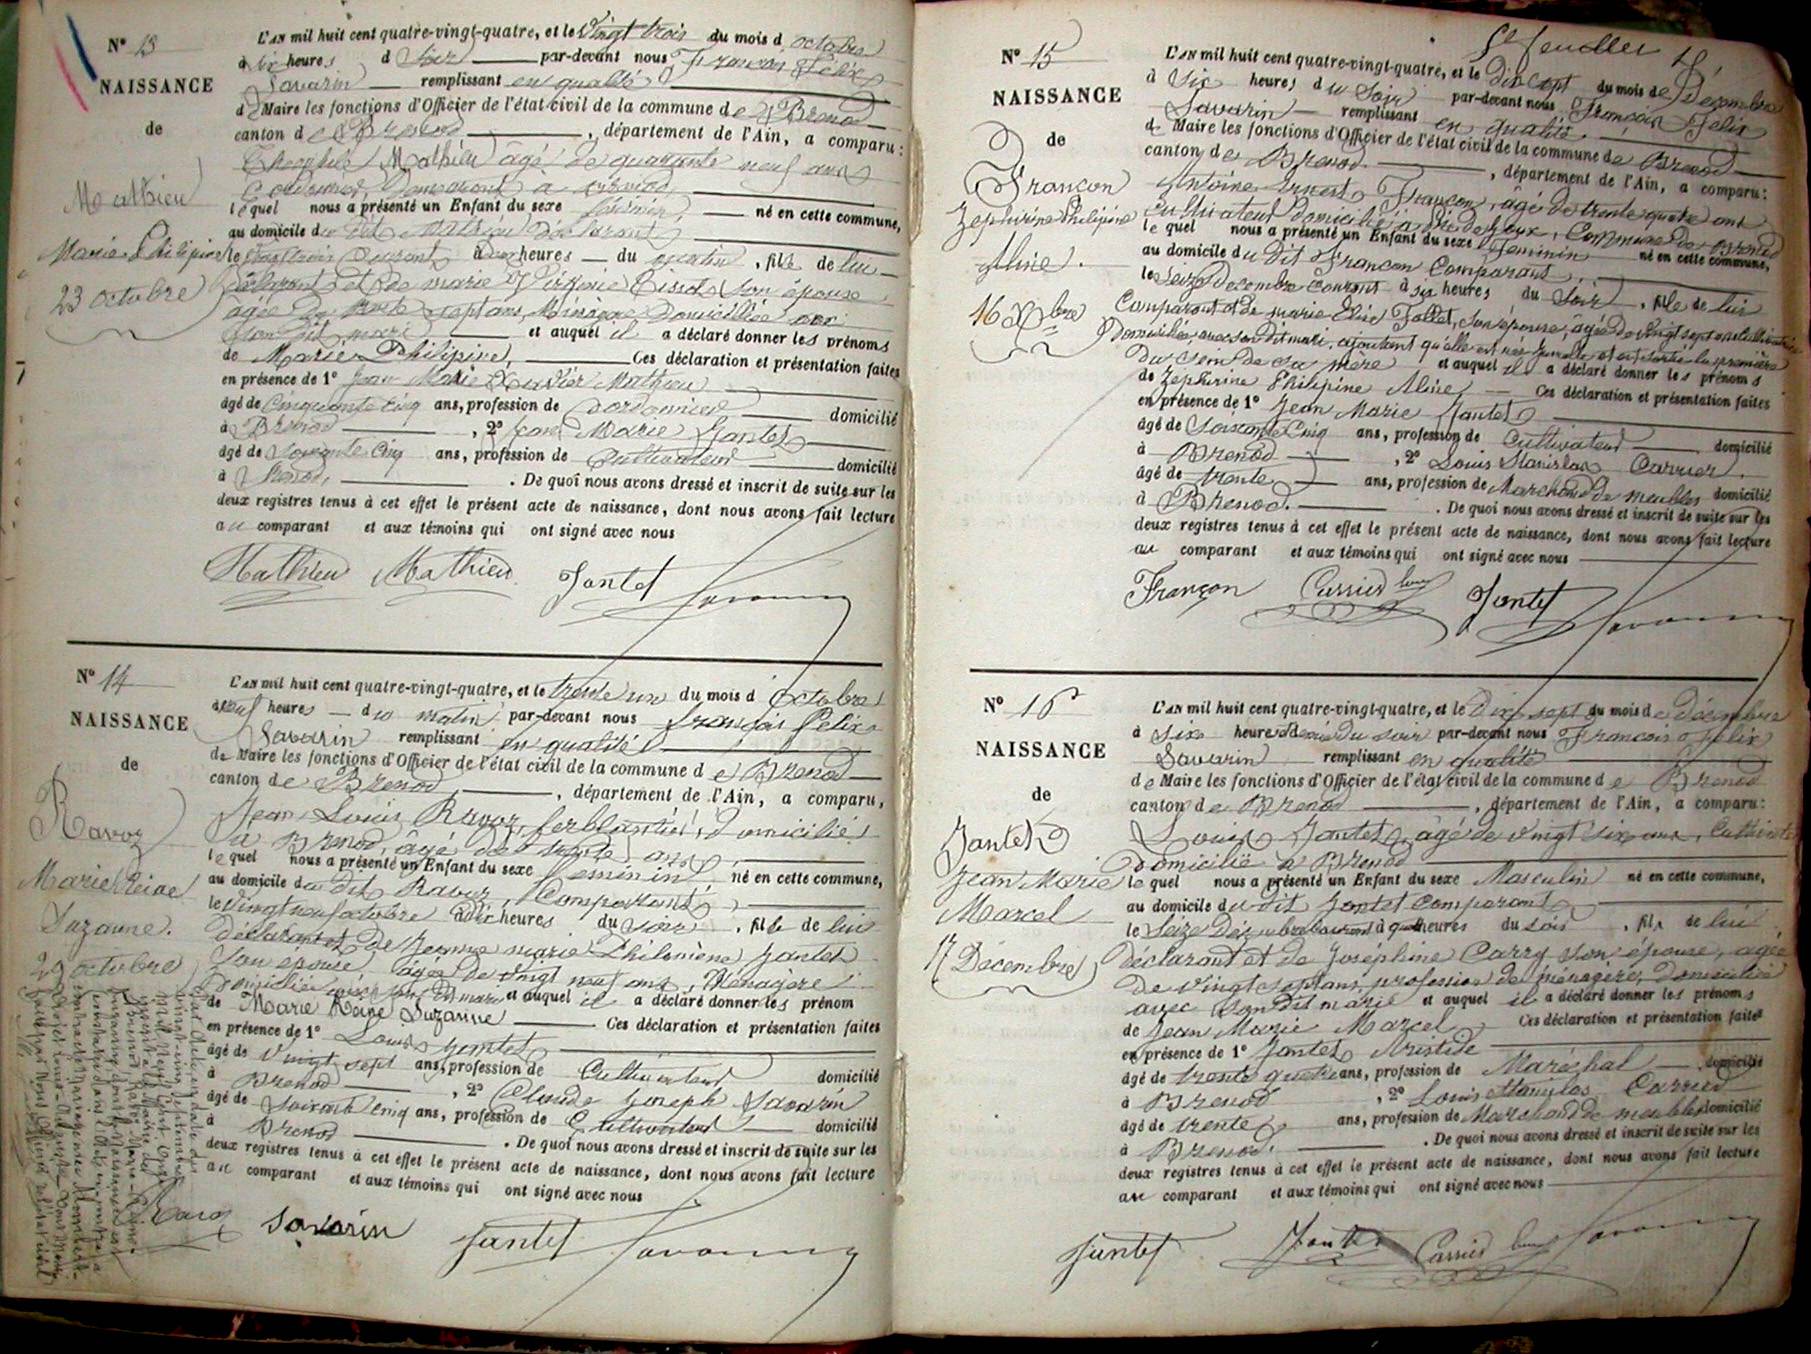 N° 13
NAISSANCE
de
Mathieu
Marie Philipine
23 octobre
L'AN mil huit cent quatre-vingt-quatre, et le Vingt trois du mois d octobre
à six heures d Soir par-devant nous François Félix
Savarin remplissant en qualité
de Maire les fonctions d'Officier de l'état civil de la commune de Brenod
canton de Brenod, département de l'Ain, a comparu:
Théophile Mathieu âgé de quarante neuf ans
Cordonnier, demeurant à Brenod
lequel nous a présenté un Enfant du sexe féminin, né en cette commune,
au domicile du dit Mathieu déclarant
le vingt trois courant à heures du matin, fille de lui
déclarant et de marie Virginie Tissot son épouse
âgée de trente sept ans, Ménagère domiciliée avec
son dit mari et auquel il a déclaré donner les prénoms
de Marie Philipine, Ces déclaration et présentation faites
en présence de 1° Jean Marie Xavier Mathieu
âgé de Cinquante Cinq ans, profession de Cordonnier domicilié
à Brenod, 2° Jean Marie Jantet
âgé de soixante Cinq ans, profession de Cultivateur domicilié
à Brenod. De quoi nous avons dressé et inscrit de suite sur les
deux registres tenus à cet effet le présent acte de naissance, dont nous avons fait lecture
au comparant et aux témoins qui ont signé avec nous
Mathieu Mathieu Jantet Savarin
N° 14
NAISSANCE
de
Ravoz
Marie Reine
Suzanne.
29 octobre
L'AN mil huit cent quatre-vingt-quatre, et le trente un du mois d octobre
à neuf heures du matin par-devant nous François Félix
Savarin remplissant en qualité
de Maire les fonctions d'Officier de l'état civil de la commune de Brenod
canton de Brenod, département de l'Ain, a comparu,
Jean Louis Ravoz, ferblantier, domicilié
à Brenod, âgé de trente ans,
lequel nous a présenté un Enfant du sexe féminin, né en cette commune,
au domicile du dit Ravoz, Comparant,
le Vingt neuf octobre à dix heures du soir, fille de lui
déclarant et de Jeanne marie Philomène Jantet
son épouse, âgée de vingt neuf ans, Ménagère
domiciliée avec son dit mari et auquel il a déclaré donner les prénom
de Marie Reine Suzanne Ces déclaration et présentation faites
en présence de 1° Louis Jantet
âgé de Vingt sept ans, profession de Cultivateur domicilié
à Brenod, 2° Claude Joseph Savarin
âgé de soixante Cinq ans, profession de Cultivateur domicilié
à Brenod. De quoi nous avons dressé et inscrit de suite sur les
deux registres tenus à cet effet le présent acte de naissance, dont nous avons fait lecture
au comparant et aux témoins qui ont signé avec nous
Ravoz Savarin Jantet Savarin
5e feuillet
N° 15
NAISSANCE
de
Françon
Zéphirine Philipine
Aline.
16 Xbre
L'AN mil huit cent quatre-vingt-quatre, et le dix sept du mois de Décembre
à Six heures du Soir par-devant nous François Félix
Savarin remplissant en qualité
de Maire les fonctions d'Officier de l'état civil de la commune de Brenod
canton de Brenod, département de l'Ain, a comparu:
Antoine Ernest Françon, âgé de trente quatre ans
cultivateur domicilié à Commune de Brenod
lequel nous a présenté un Enfant du sexe féminin né en cette commune,
au domicile du dit Françon Comparant,
le seize décembre courant à six heures du Soir, fille de lui
Comparant et de marie Elise Follet, son épouse, âgée de vingt sept ans
Domiciliée avec son dit mari, ajoutant qu'elle est née Jumelle et est sortie la première
du sein de sa mère et auquel il a déclaré donner les prénoms
de Zéphirine Philipine Aline Ces déclaration et présentation faites
en présence de 1° Jean Marie Jantet
âgé de Soixante Cinq ans, profession de Cultivateur domicilié
à Brenod, 2° Louis Stanislas Carrier
âgé de trente ans, profession de Marchand de meubles domicilié
à Brenod. De quoi nous avons dressé et inscrit de suite sur les
deux registres tenus à cet effet le présent acte de naissance, dont nous avons fait lecture
au comparant et aux témoins qui ont signé avec nous
Françon Carrier Louis Jantet Savarin
N° 16
NAISSANCE
de
Jantet
Jean Marie
Marcel
17 Décembre
L'AN mil huit cent quatre-vingt-quatre, et le Dix sept du mois de décembre
à six heures du soir par-devant nous François Félix
Savarin remplissant en qualité
de Maire les fonctions d'Officier de l'état civil de la commune de Brenod
canton de Brenod, département de l'Ain, a comparu:
Louis Jantet, âgé de vingt six ans, Cultivateur
domicilié à Brenod
lequel nous a présenté un Enfant du sexe Masculin né en cette commune,
au domicile du dit Jantet comparant
le Seize Décembre courant à quatre heures du soir, fils de lui
déclarant et de Joséphine Carry son épouse, agée
de vingt sept ans, profession de ménagère, domiciliée
avec son dit marie et auquel il a déclaré donner les prénoms
de Jean Marie Marcel Ces déclaration et présentation faites
en présence de 1° Jantet Aristide
âgé de trente quatre ans, profession de Maréchal domicilié
à Brenod, 2° Louis Stanislas Carrier
âgé de trente ans, profession de Marchand de meubles domicilié
à Brenod. De quoi nous avons dressé et inscrit de suite sur les
deux registres tenus à cet effet le présent acte de naissance, dont nous avons fait lecture
au comparant et aux témoins qui ont signé avec nous
Jantet Jantet Carrier Louis Savarin